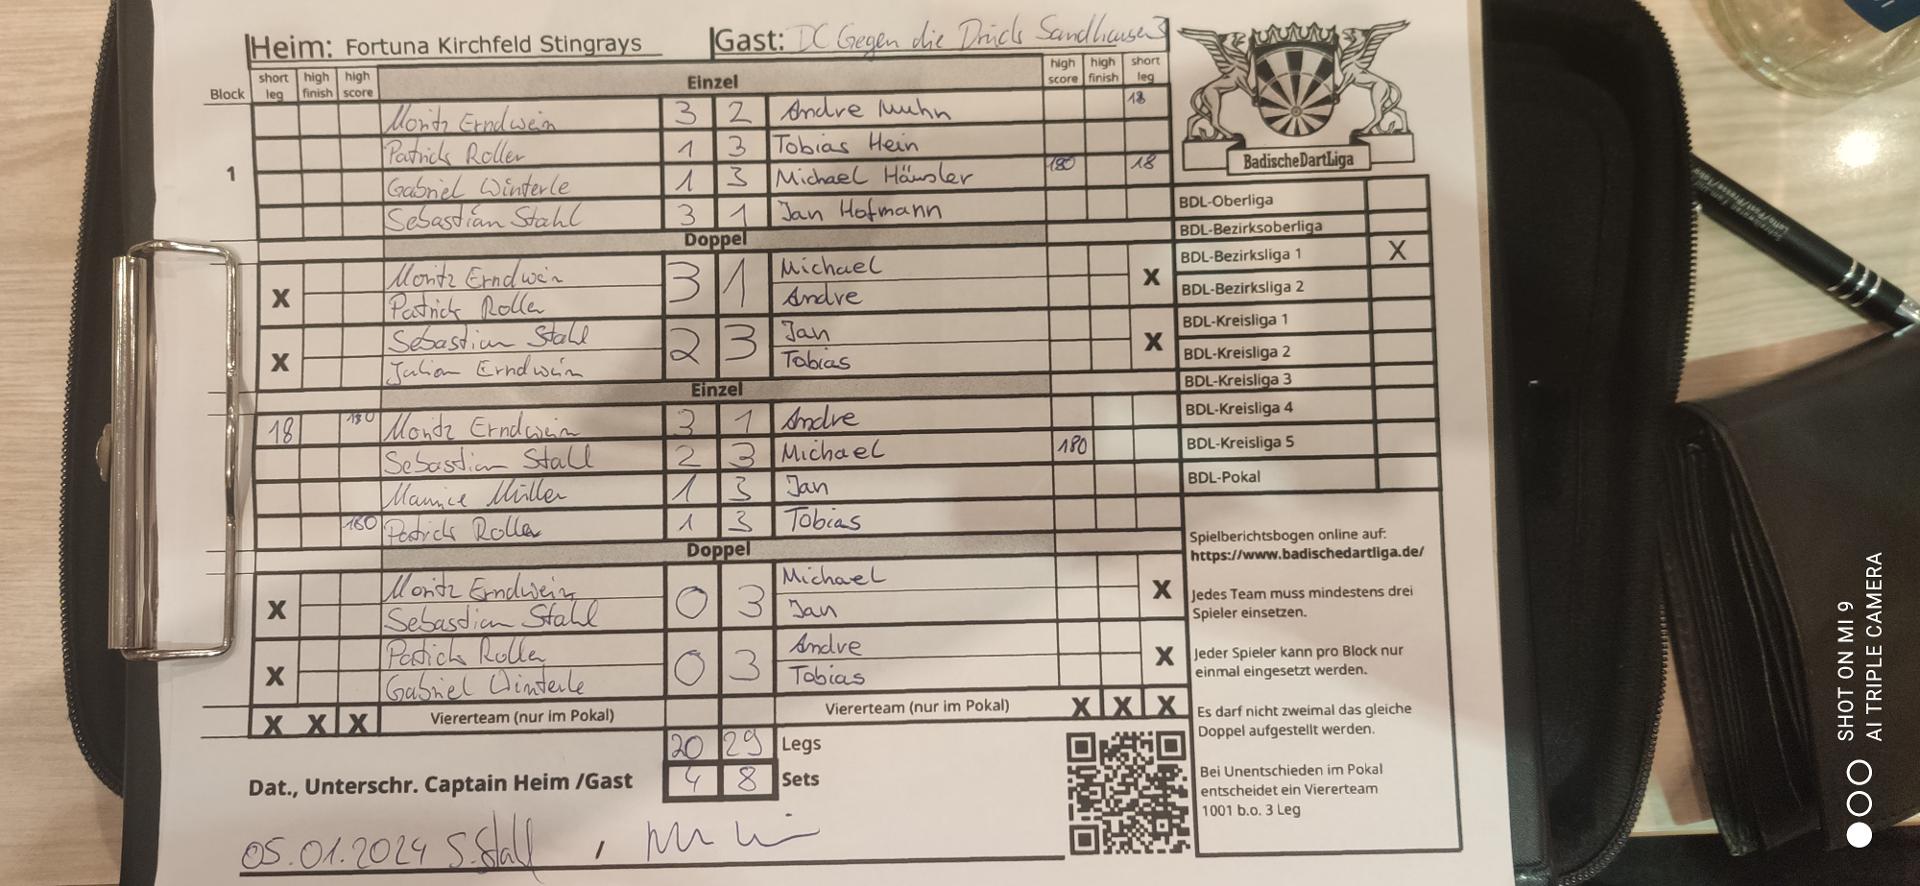 Heim: Fortuna Kirchfeld Stingrays Gast: DC Gegen die Drück Sandhausen 3
Block short leg high finish high score Einzel high score high finish short leg
Moritz Erndwein 3 2 Andre Muhn 18
Patrick Roller 1 3 Tobias Hein
1 Gabriel Winterle 1 3 Michael Häusler 180 18
Sebastian Stahl 3 1 Jan Hofmann
Doppel
X Moritz Erndwein 3 1 Michael X
Patrick Roller Andre
X Sebastian Stahl 2 3 Jan X
Julian Erndwein Tobias
Einzel
18 180 Moritz Erndwein 3 1 Andre
Sebastian Stahl 2 3 Michael 180
Maurice Müller 1 3 Jan
180 Patrick Roller 1 3 Tobias
Doppel
X Moritz Erndwein 0 3 Michael X
Sebastian Stahl Jan
X Patrick Roller 0 3 Andre X
Gabriel Winterle Tobias
X X X Viererteam (nur im Pokal) Viererteam (nur im Pokal) X X X
20 29 Legs
Dat., Unterschr. Captain Heim /Gast 4 8 Sets
05.01.2024 S. Stahl /
BadischeDartLiga
BDL-Oberliga
BDL-Bezirksoberliga
BDL-Bezirksliga 1 X
BDL-Bezirksliga 2
BDL-Kreisliga 1
BDL-Kreisliga 2
BDL-Kreisliga 3
BDL-Kreisliga 4
BDL-Kreisliga 5
BDL-Pokal
Spielberichtsbogen online auf:
https://www.badischedartliga.de/
Jedes Team muss mindestens drei
Spieler einsetzen.
Jeder Spieler kann pro Block nur
einmal eingesetzt werden.
Es darf nicht zweimal das gleiche
Doppel aufgestellt werden.
Bei Unentschieden im Pokal
entscheidet ein Viererteam
1001 b.o. 3 Leg
SHOT ON MI 9
AI TRIPLE CAMERA